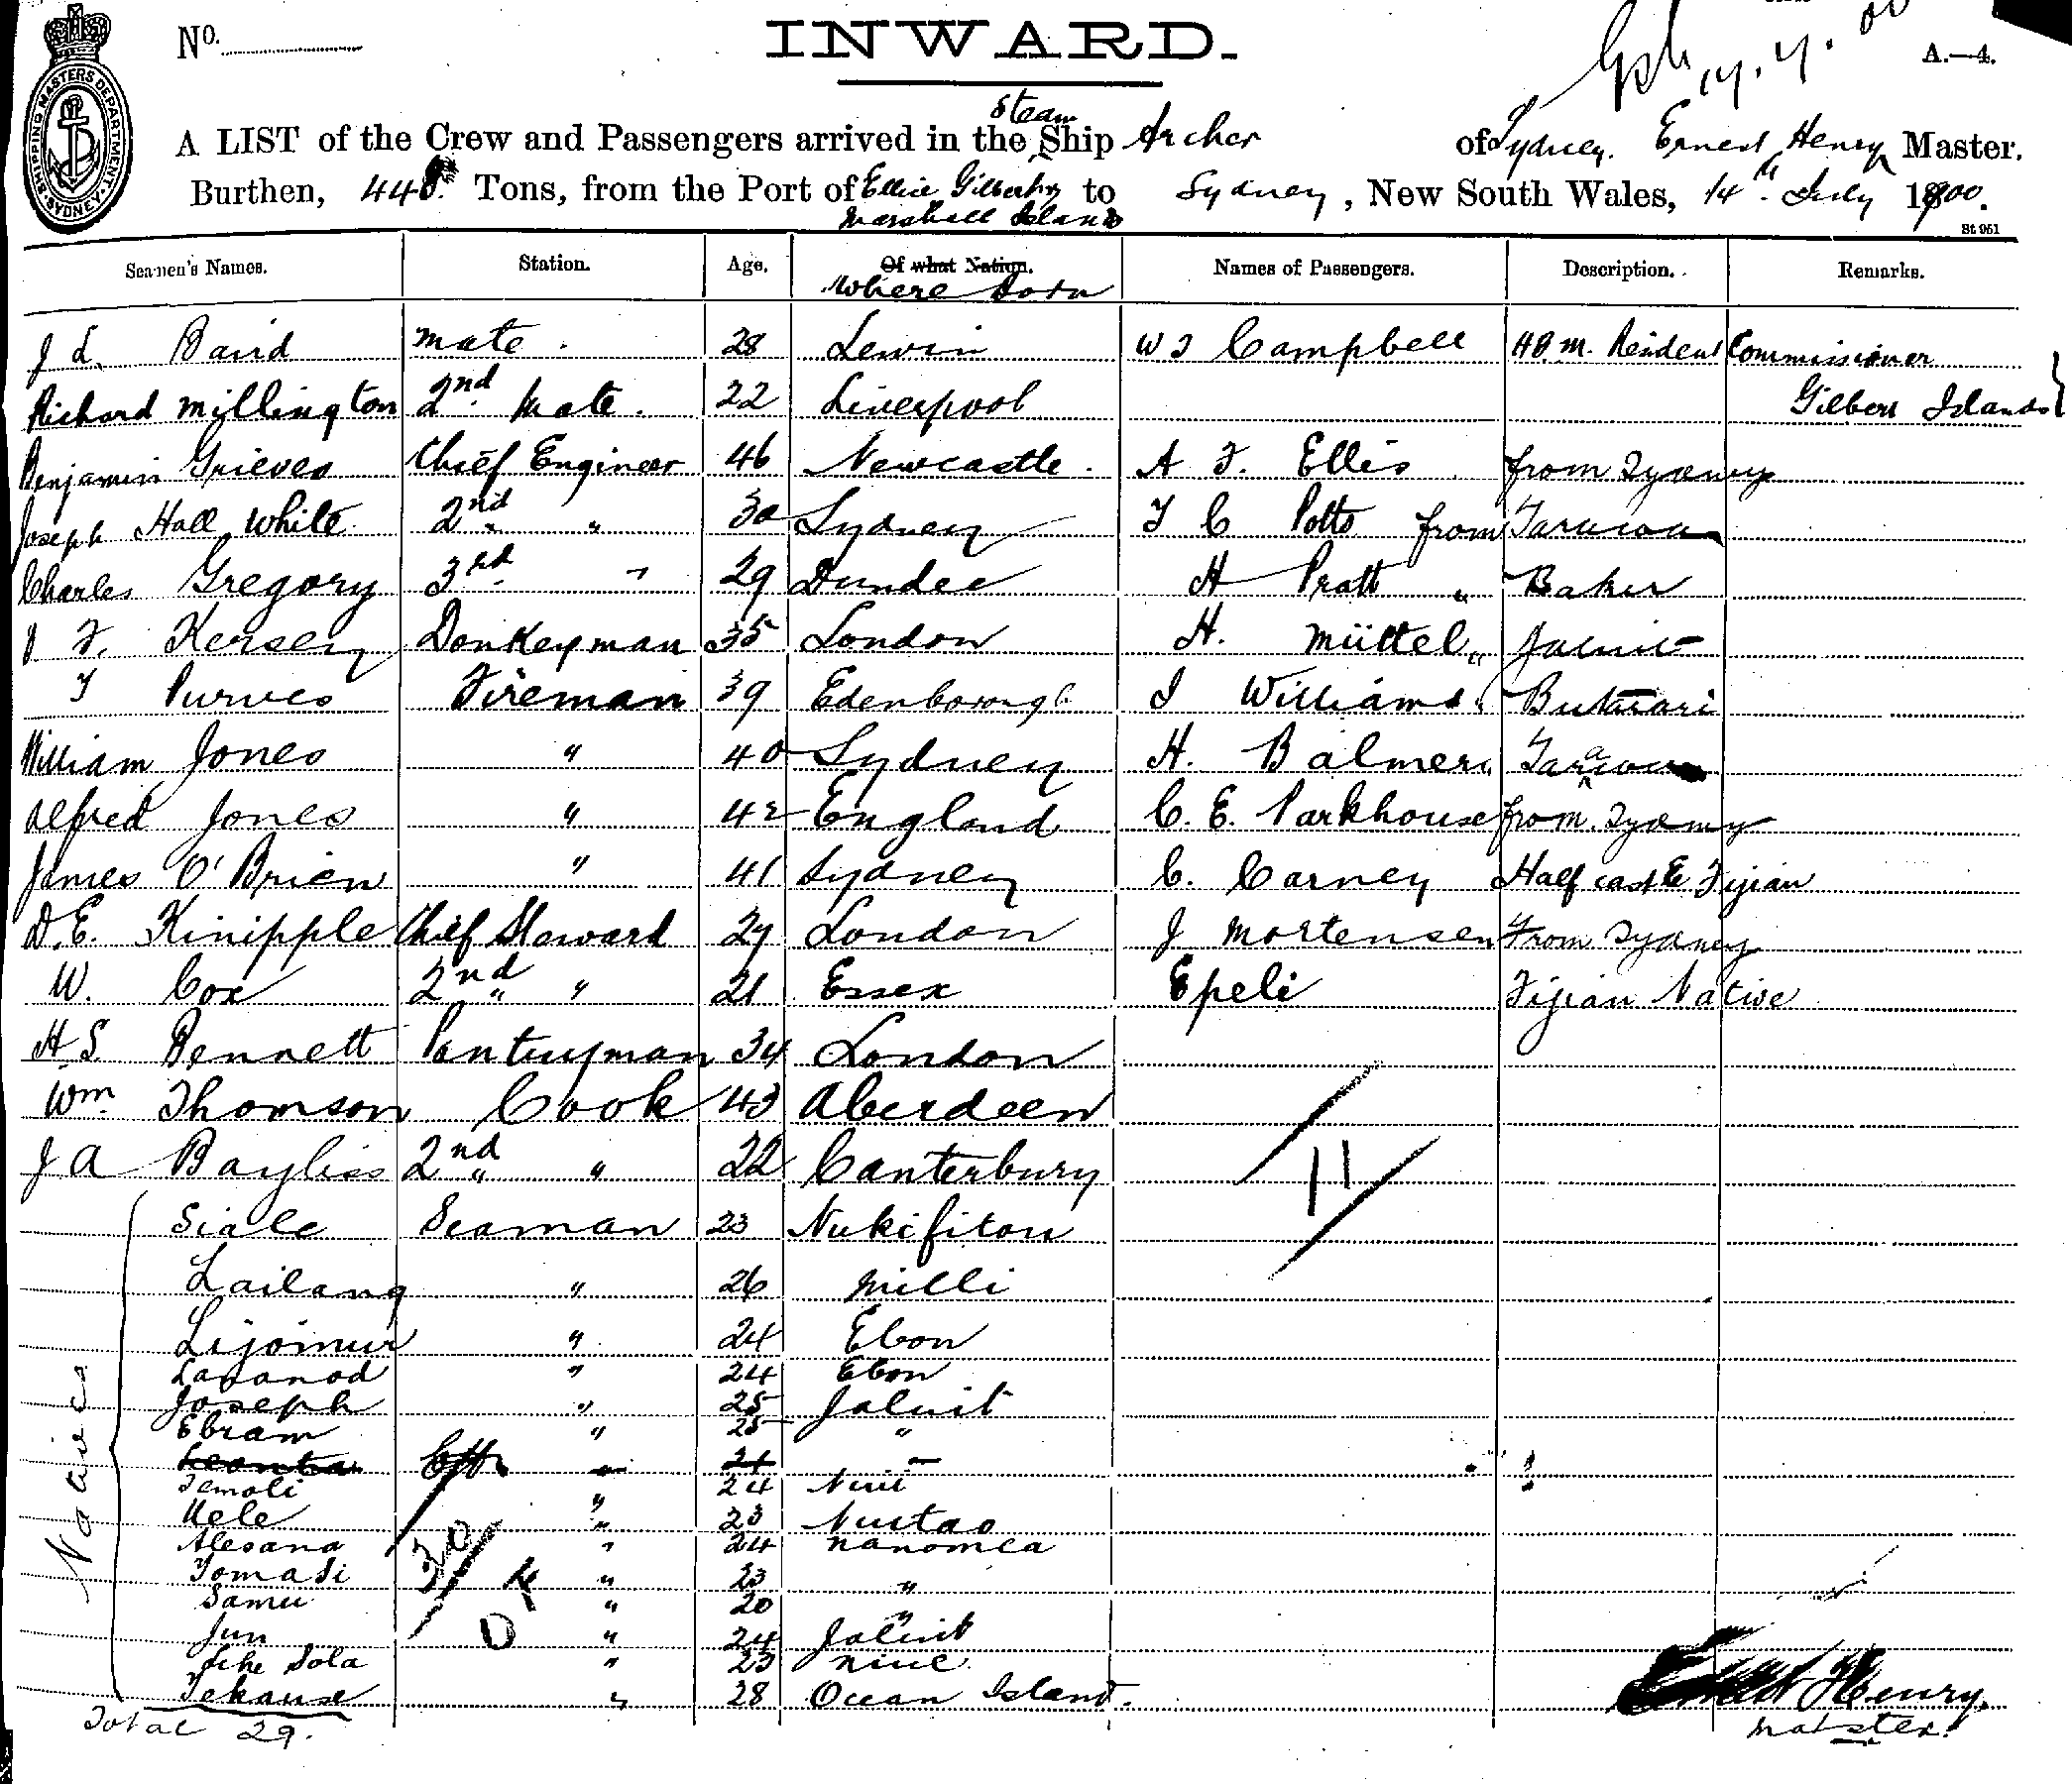 No.
INWARD.
A.—4.
SHIPPING MASTERS DEPARTMENT SYDNEY
Steam
A LIST of the Crew and Passengers arrived in the Ship Archer of Sydney. Ernest Henry Master.
Burthen, 448 Tons, from the Port of Ellice Gilbert to Sydney, New South Wales, 14th July 1900.
Marshall Islands
St 951
Seamen's Names. Station. Age. Of what Nation. Names of Passengers. Description. Remarks.
Where Born
J L. Baird Mate. 28 Lewin W J Campbell H.B.M. Resident Commissioner
Richard Millington 2nd Mate. 22 Liverpool Gilbert Islands
Benjamin Grieves Chief Engineer 46 Newcastle. A F. Ellis from Sydney
Joseph Hall White 2nd " " 30 Sydney T C Potts from Tarawa
Charles Gregory 3rd " 29 Dundee H Pratt " Baker
J F. Kersey Donkeyman 35 London H. Müttel " Jaluit
T Purves Fireman 39 Edenborough J Williams " Butaritari
William Jones " 40 Sydney H. Balmer " Tarawa
Alfred Jones " 42 England C. E. Parkhouse from Sydney
James O'Brien " 41 Sydney C. Carney Half caste Fijian
D. E. Kinipple Chief Steward 27 London J Mortensen From Sydney
W. Cox 2nd " " 21 Essex Epeli Fijian Native
H S. Bennett Pantryman 34 London
Wm. Thomson Cook 43 Aberdeen
J A Bayliss 2nd " " 22 Canterbury
11
Natives
Siale Seaman 23 Nukifitou
Lailang " 26 Milli
Lijomur " 24 Ebon
Labanod " 24 Ebon
Joseph " 25 Jaluit
Ebram " 25 "
" 24 "
Temoli " 24 Niui
Uele " 23 Nuitao
Alesana " 24 Nanomea
Tomasi " 23 "
Samu " 20 "
Jun " 24 Jaluit
Sola " 23 Niue
Tekause " 28 Ocean Island.
30
Total 29.
Ernest Henry.
Master.